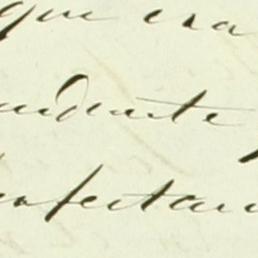 que era
ndente
rfectam